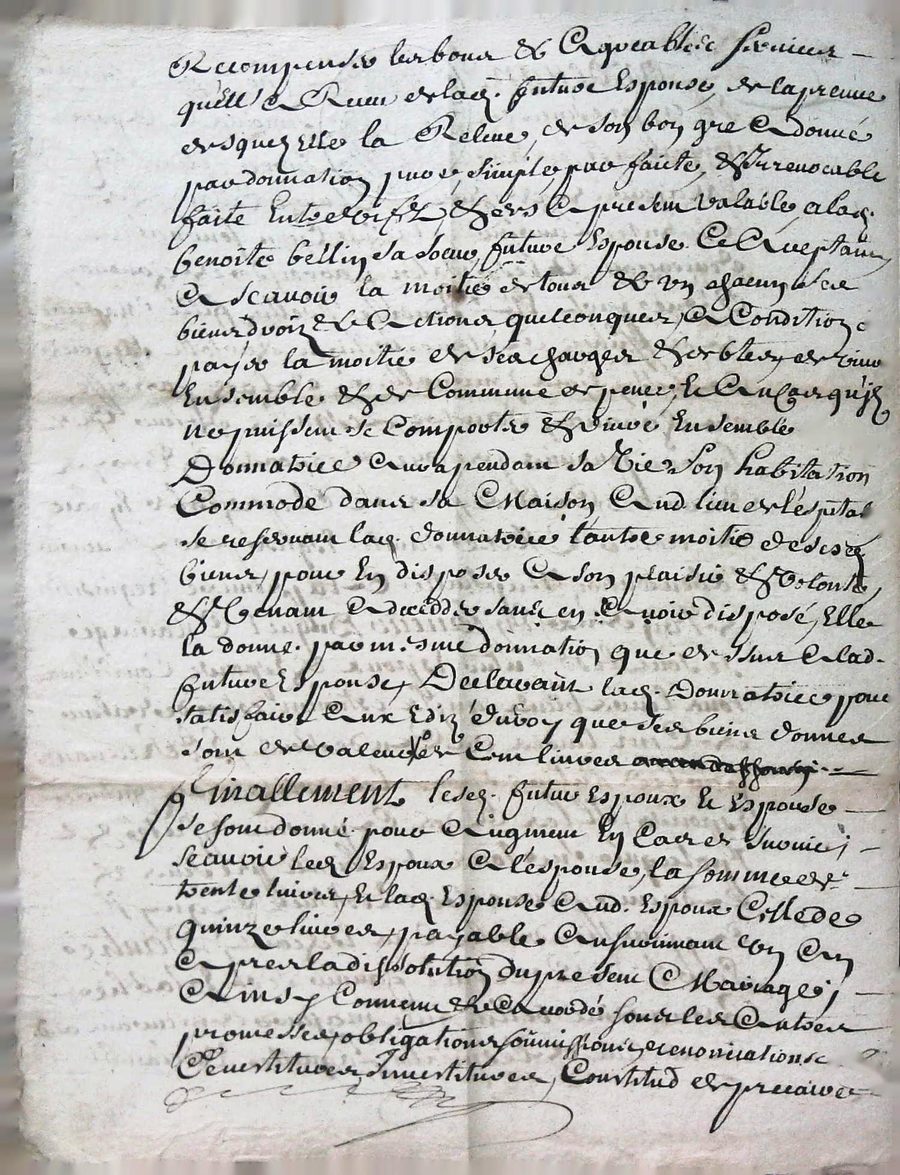 Recompenser les bons & agreables services
qu'ell' a Receu de lad. future Espouse, de la preuve
desquels Elle la Releve, de son bon gre a donné
par donnation pure, simple parfaite, & Irrevocable
faite Entre vifz, & des a present valable a lad.
benoite bellin sa soeur future Espouse Ce Aceptant
a scavoir la moitié de tous & un chacun ses
biens droiz & actions quelconques, a Condition
payer la moitie de ses charges & debtes, de vivre
Ensemble & de Commune depence, Et au Cas qu'ilz
ne puissent se Comporter & vivre Ensemble
Donnatrice aura pendant sa Vie Son habitation
Commode dans sa Maison aud lieu de l'espital
se reservant lad. donnatrice l'autre moitié de ses
biens, pour En disposer a son plaisir & volonté,
& Venant a decedder sans en avoir disposé, Elle
la donne par mesme donnation que dessus a lad.
future Espouse, Declarant lad. Donnatrice pour
satisfaire aux Ediz du Roy que ses biens donnes
sont de valeur de Cent livres
finallement lesd. futur Espoux Et Espouse
se sont donné pour augment En Cas de survie;
scavoir led Espoux a l'espouse, la somme de
trente livres, Et lad. Espouse aud. Espoux Celle de
quinze livres, payable au survivant un an
apres la dissolution du present Mariage;
ainsy Convenu & accordé sous les autres
promesses, obligations soumissions, renonciations
devestitures Investitures, Constitud de precaire